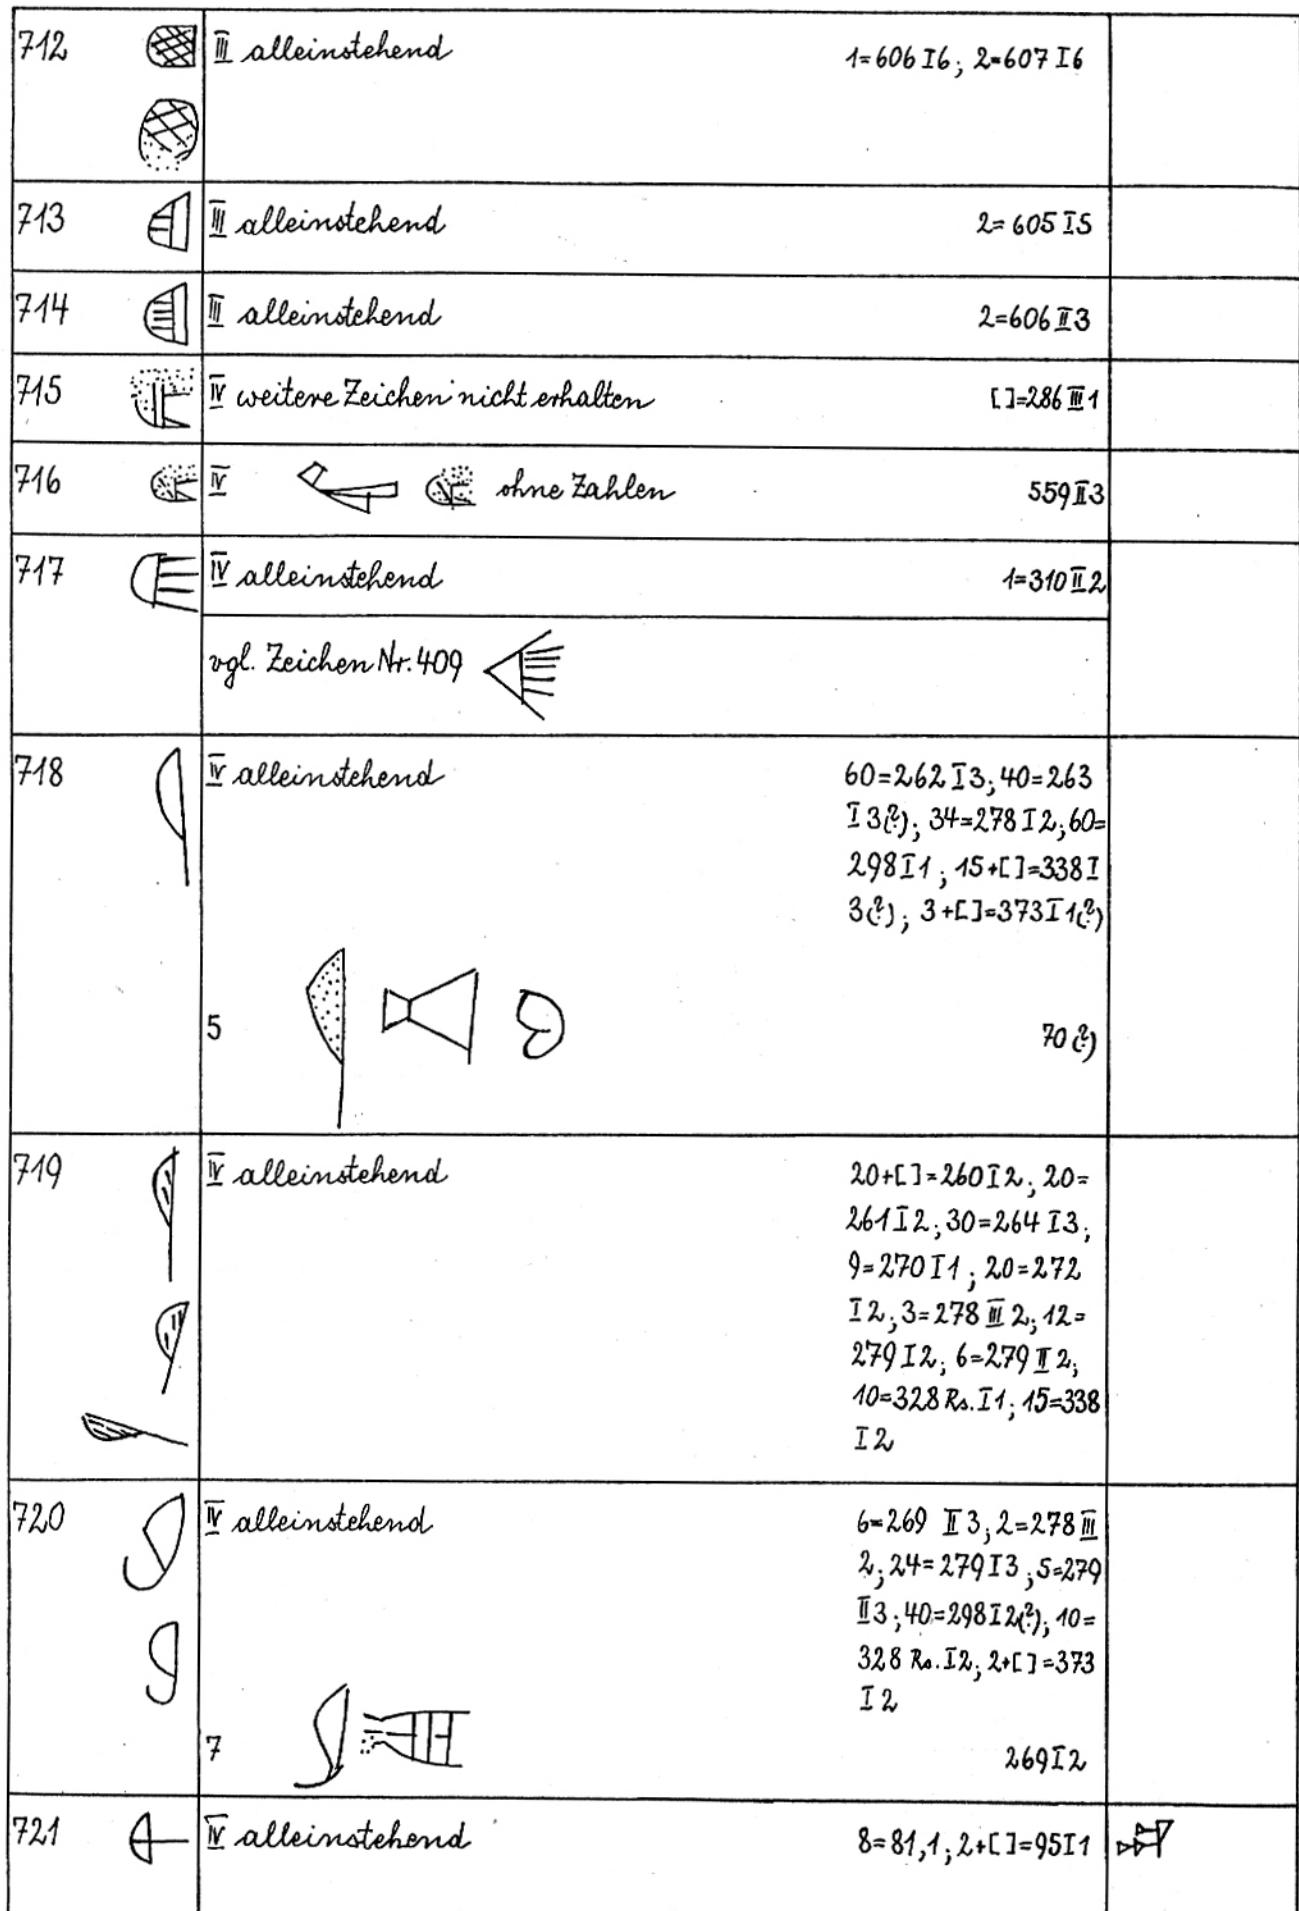 712 III alleinstehend 1=606 I6; 2=607 I6
713 III alleinstehend 2=605 I5
714 III alleinstehend 2=606 II 3
715 IV weitere Zeichen nicht erhalten [ ]=286 III 1
716 IV ohne Zahlen 559 II 3
717 IV alleinstehend 1=310 II 2
vgl. Zeichen Nr. 409
718 IV alleinstehend 60=262 I 3; 40=263
I 3(?); 34=278 I 2; 60=
298 I 1; 15+[ ]=338 I
3(?); 3+[ ]=373 I 1(?)
5 70(?)
719 IV alleinstehend 20+[ ]=260 I 2; 20=
261 I 2; 30=264 I 3;
9=270 I 1; 20=272
I 2; 3=278 III 2; 12=
279 I 2; 6=279 II 2;
10=328 Rs. I 1; 15=338
I 2
720 IV alleinstehend 6=269 II 3; 2=278 III
2; 24=279 I 3; 5=279
II 3; 40=298 I 2(?); 10=
328 Rs. I 2; 2+[ ]=373
I 2
7 269 I 2
721 IV alleinstehend 8=81,1; 2+[ ]=95 I 1